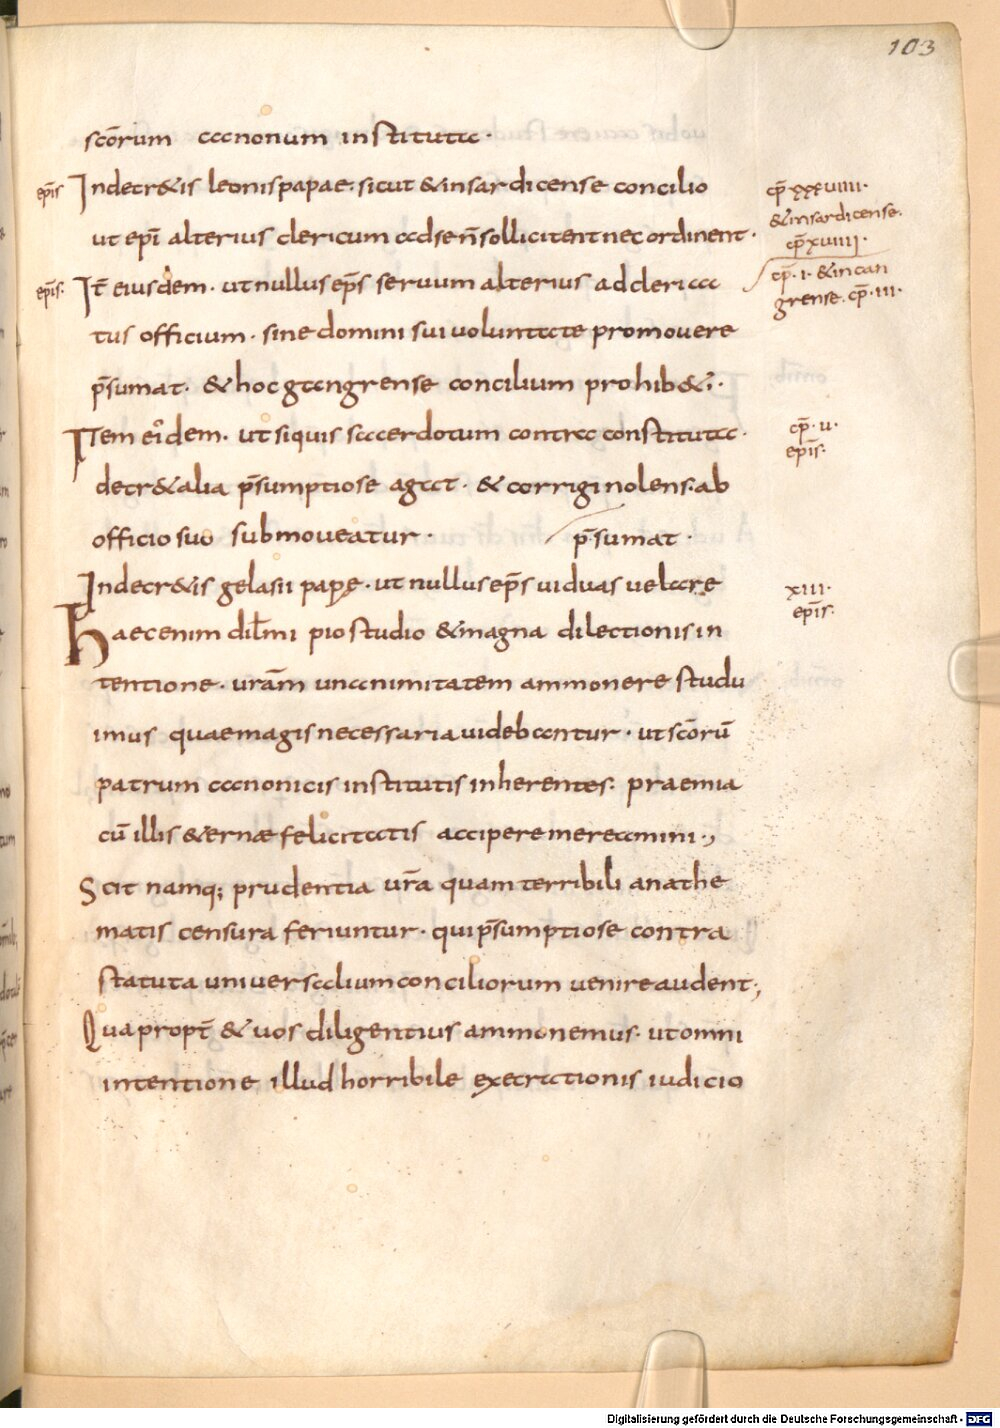 103
scōrum canonum instituta·
ep̄is Indecr&is leonispapae· sicut &insardicense concilio
cp̄·xxxviiii·
&insardicense·
cp̄xviiii·
ut ep̄i alterius clericum adsen̄sollicitent nec ordinent·
ep̄is· It̄ eiusdem· ut nullus ep̄s seruum alterius adclerica
cp̄·i·&incan
grense·cp̄·iii·
tus officium· sine domini sui uoluntate promouere
p̄sumat· &hoc gangrense concilium prohib&·
Item eidem· ut siquis sacerdotum contra constituta·
cp̄·u·
ep̄is·
decr&alia p̄sumptiose agat· &corrigi nolens·ab
officio suo submoueatur·
p̄sumat·
Indecr&is gelasii papę· ut nullus ep̄s uiduas uelare
xiii·
ep̄is·
haec enim dil̄mi pio studio &magna dilectionis in
tentione· ur̄am unanimitatem ammonere studu
imus quae magis necessaria uidebantur· ut scōrū
patrum canonicis institutis inherentes· praemia
cū illis &ernae felicitatis accipere mereamini·,
Scit namq; prudentia ur̄a quam terribili anathe
matis censura feriuntur· qui p̄sumptiose contra
statuta uniuersalium conciliorum uenire audent;
Quapropt̄ &uos diligentius ammonemus· ut omni
intentione illud horribile execrationis iudicio
Digitalisierung gefördert durch die Deutsche Forschungsgemeinschaft - DFG